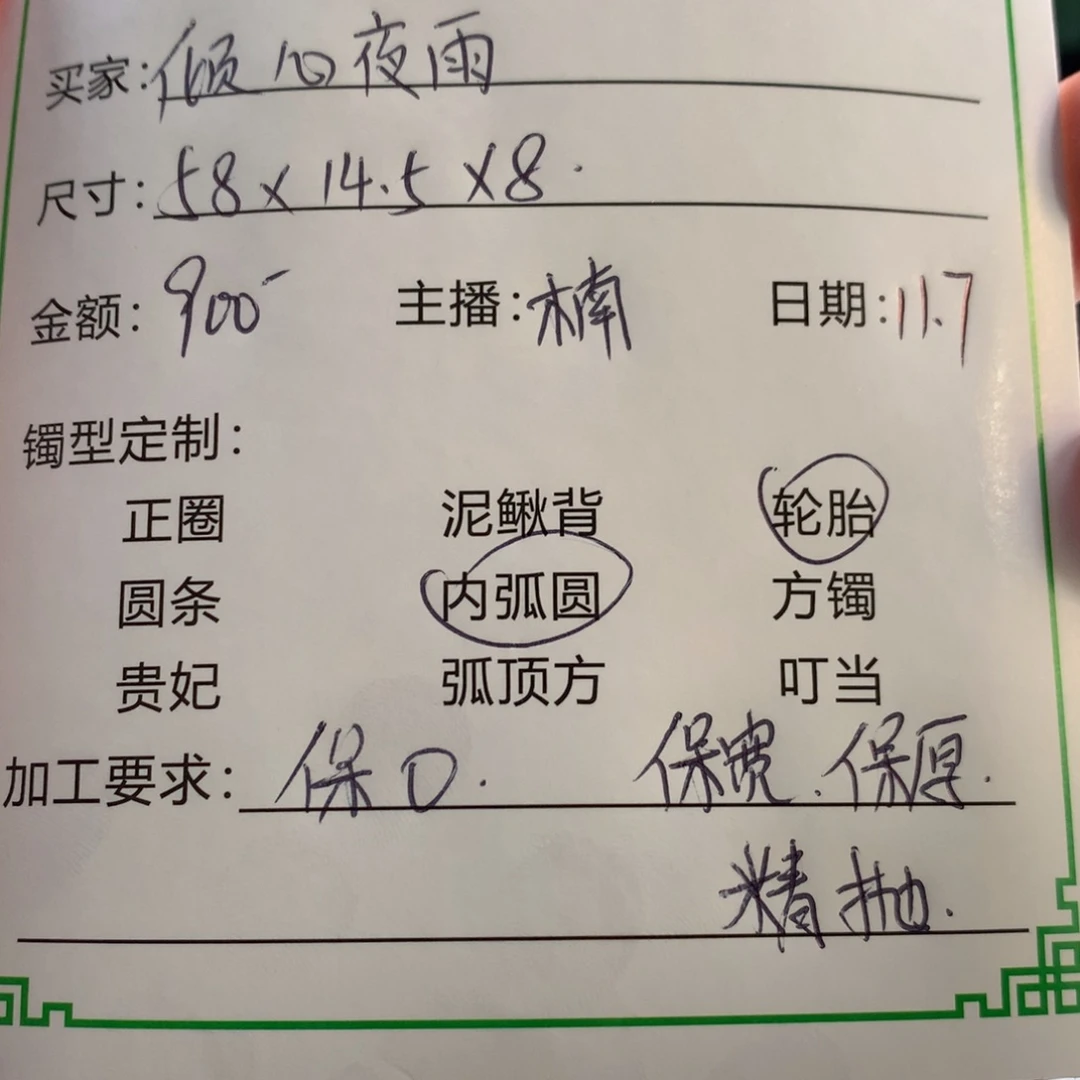 买家:倾心夜雨
尺寸:58×14.5×8.
金额:900 主播:楠 日期:11.7
镯型定制:
正圈 泥鳅背 轮胎
圆条 内弧圆 方镯
贵妃 弧顶方 叮当
加工要求:保口. 保宽.保厚.
精抛.